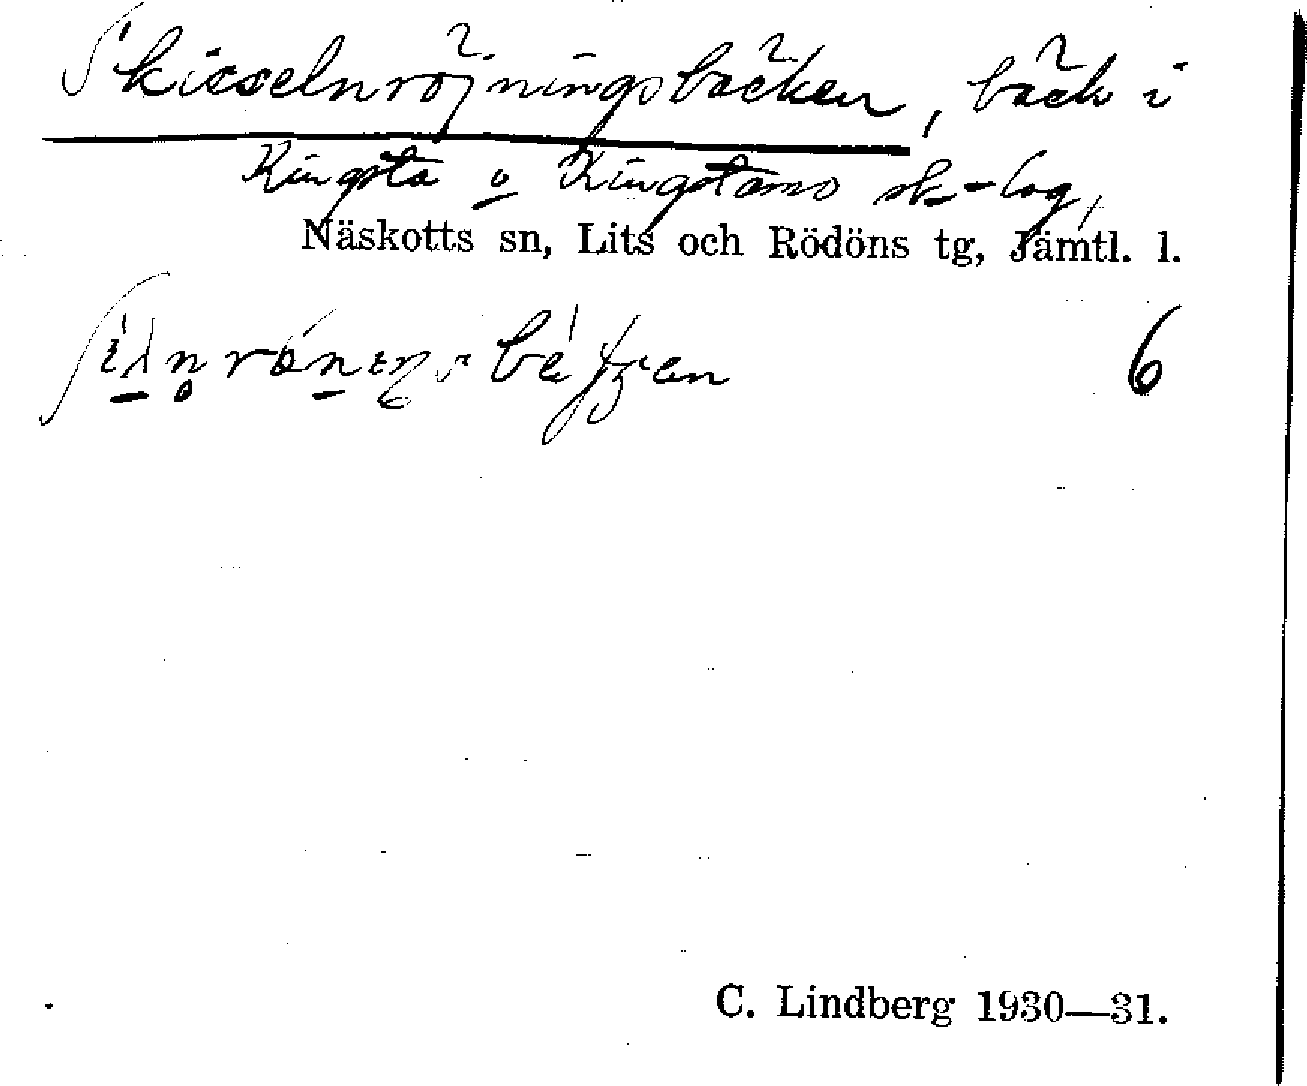 Skisselnröjningsbäcken, bäck i
Kingsta o Kingstamo sk-lag,
Näskotts sn, Lits och Rödöns tg, Jämtl. l.
6
C. Lindberg 1930—31.